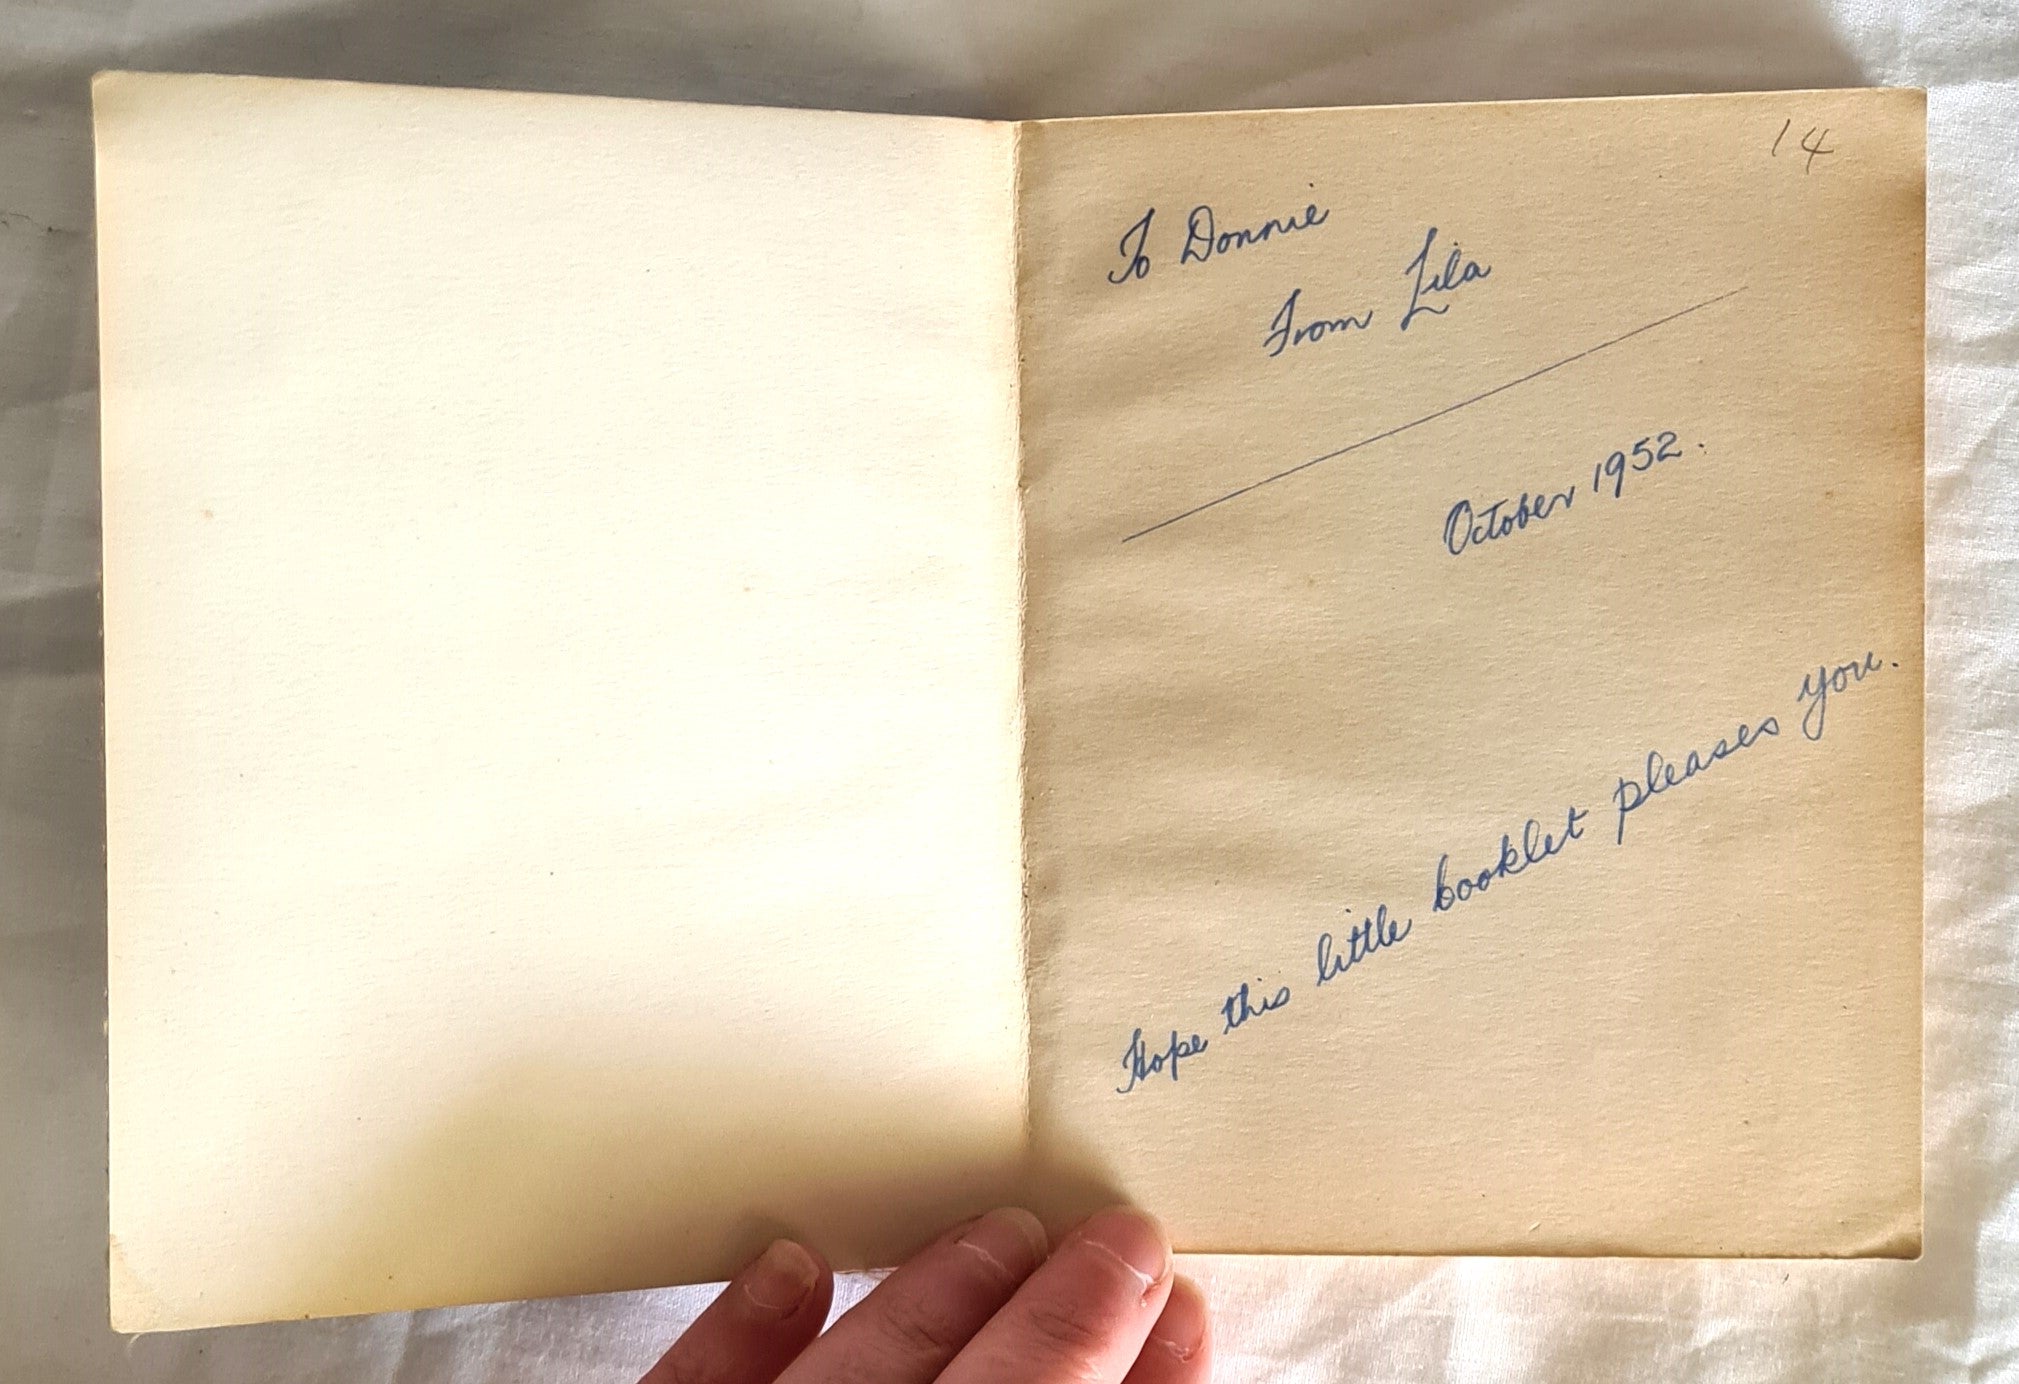 14
To Donnie
From Lila
October 1952.
Hope this little booklet pleases you.